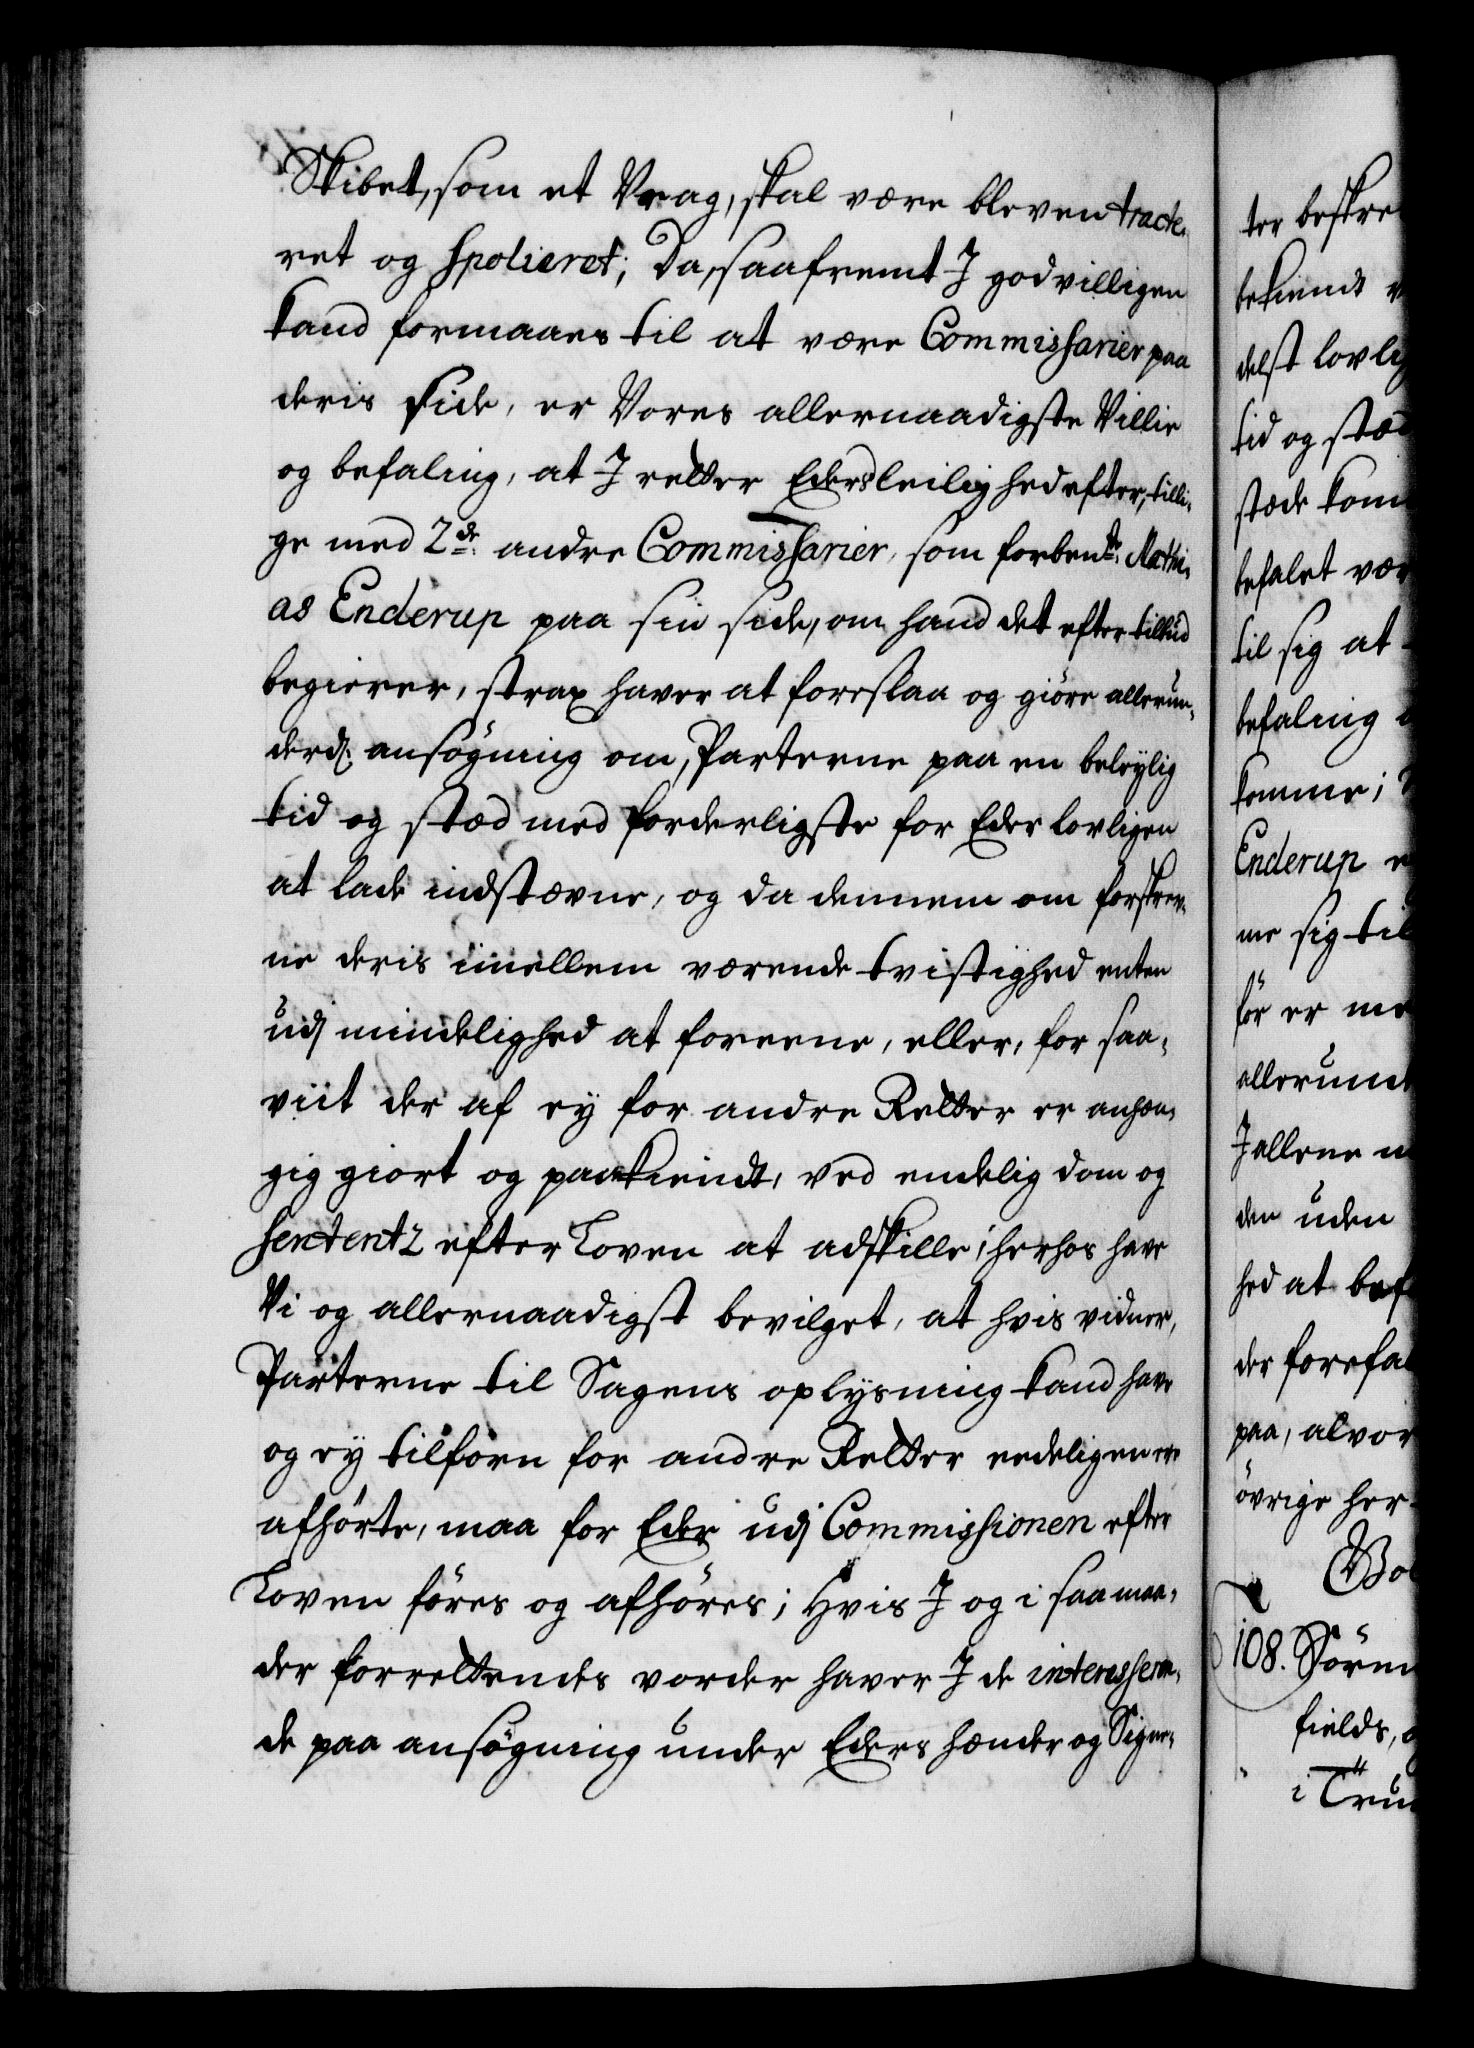 Skibet, som et Vrag, skal være bleven tracte-
ret og spolieret; Da, saafremt I godvilligen
kand formaaes til at være Commissarier paa
deris side, er Vores allernaadigste Villie
og befaling, at I retter Eders leilighed efter, tilli-
ge med 2de. andre Commissarier, som forbente. Mathi-
as Enderup paa sin side, om hand det efter tilbud
begierer, strax haver at foreslaa og giøre allerun-
derd. ansøgning om, Parterne paa en beleylig
tid og stæd med forderligste for Eder lovligen
at lade indstævne, og da dennem om forskrev-
ne deris imellem værende tvistighed enten
udj mindelighed at foreene, eller, for saa-
viit der af ey for andre Retter er anhæn-
gig giort og paakiendt, ved endelig dom og
sententz efter Loven at adskille; herhos have
Vi og allernaadigst bevilget, at hvis vidner,
Parterne til Sagens oplysning kand have
og ey tilforn for andre Retter eedeligen ere
afhørte, maa for Eder udj Commissionen efter
Loven føres og afhøres; Hvis I og i saa maa-
der forrettendes vorder haver I de interesseren-
de paa ansøgning under Eders hænder og Signe-
ter beskre
bekiendt
delst lovlig
tid og stæd
stæde kom
befalet vær
til sig at
befaling
komme;
Enderup
me sig til
før er me
allerund
I allene
den uden
hed at bef
der forefal
paa, alvor
øvrige her
108. Søren
fields,
i Trun